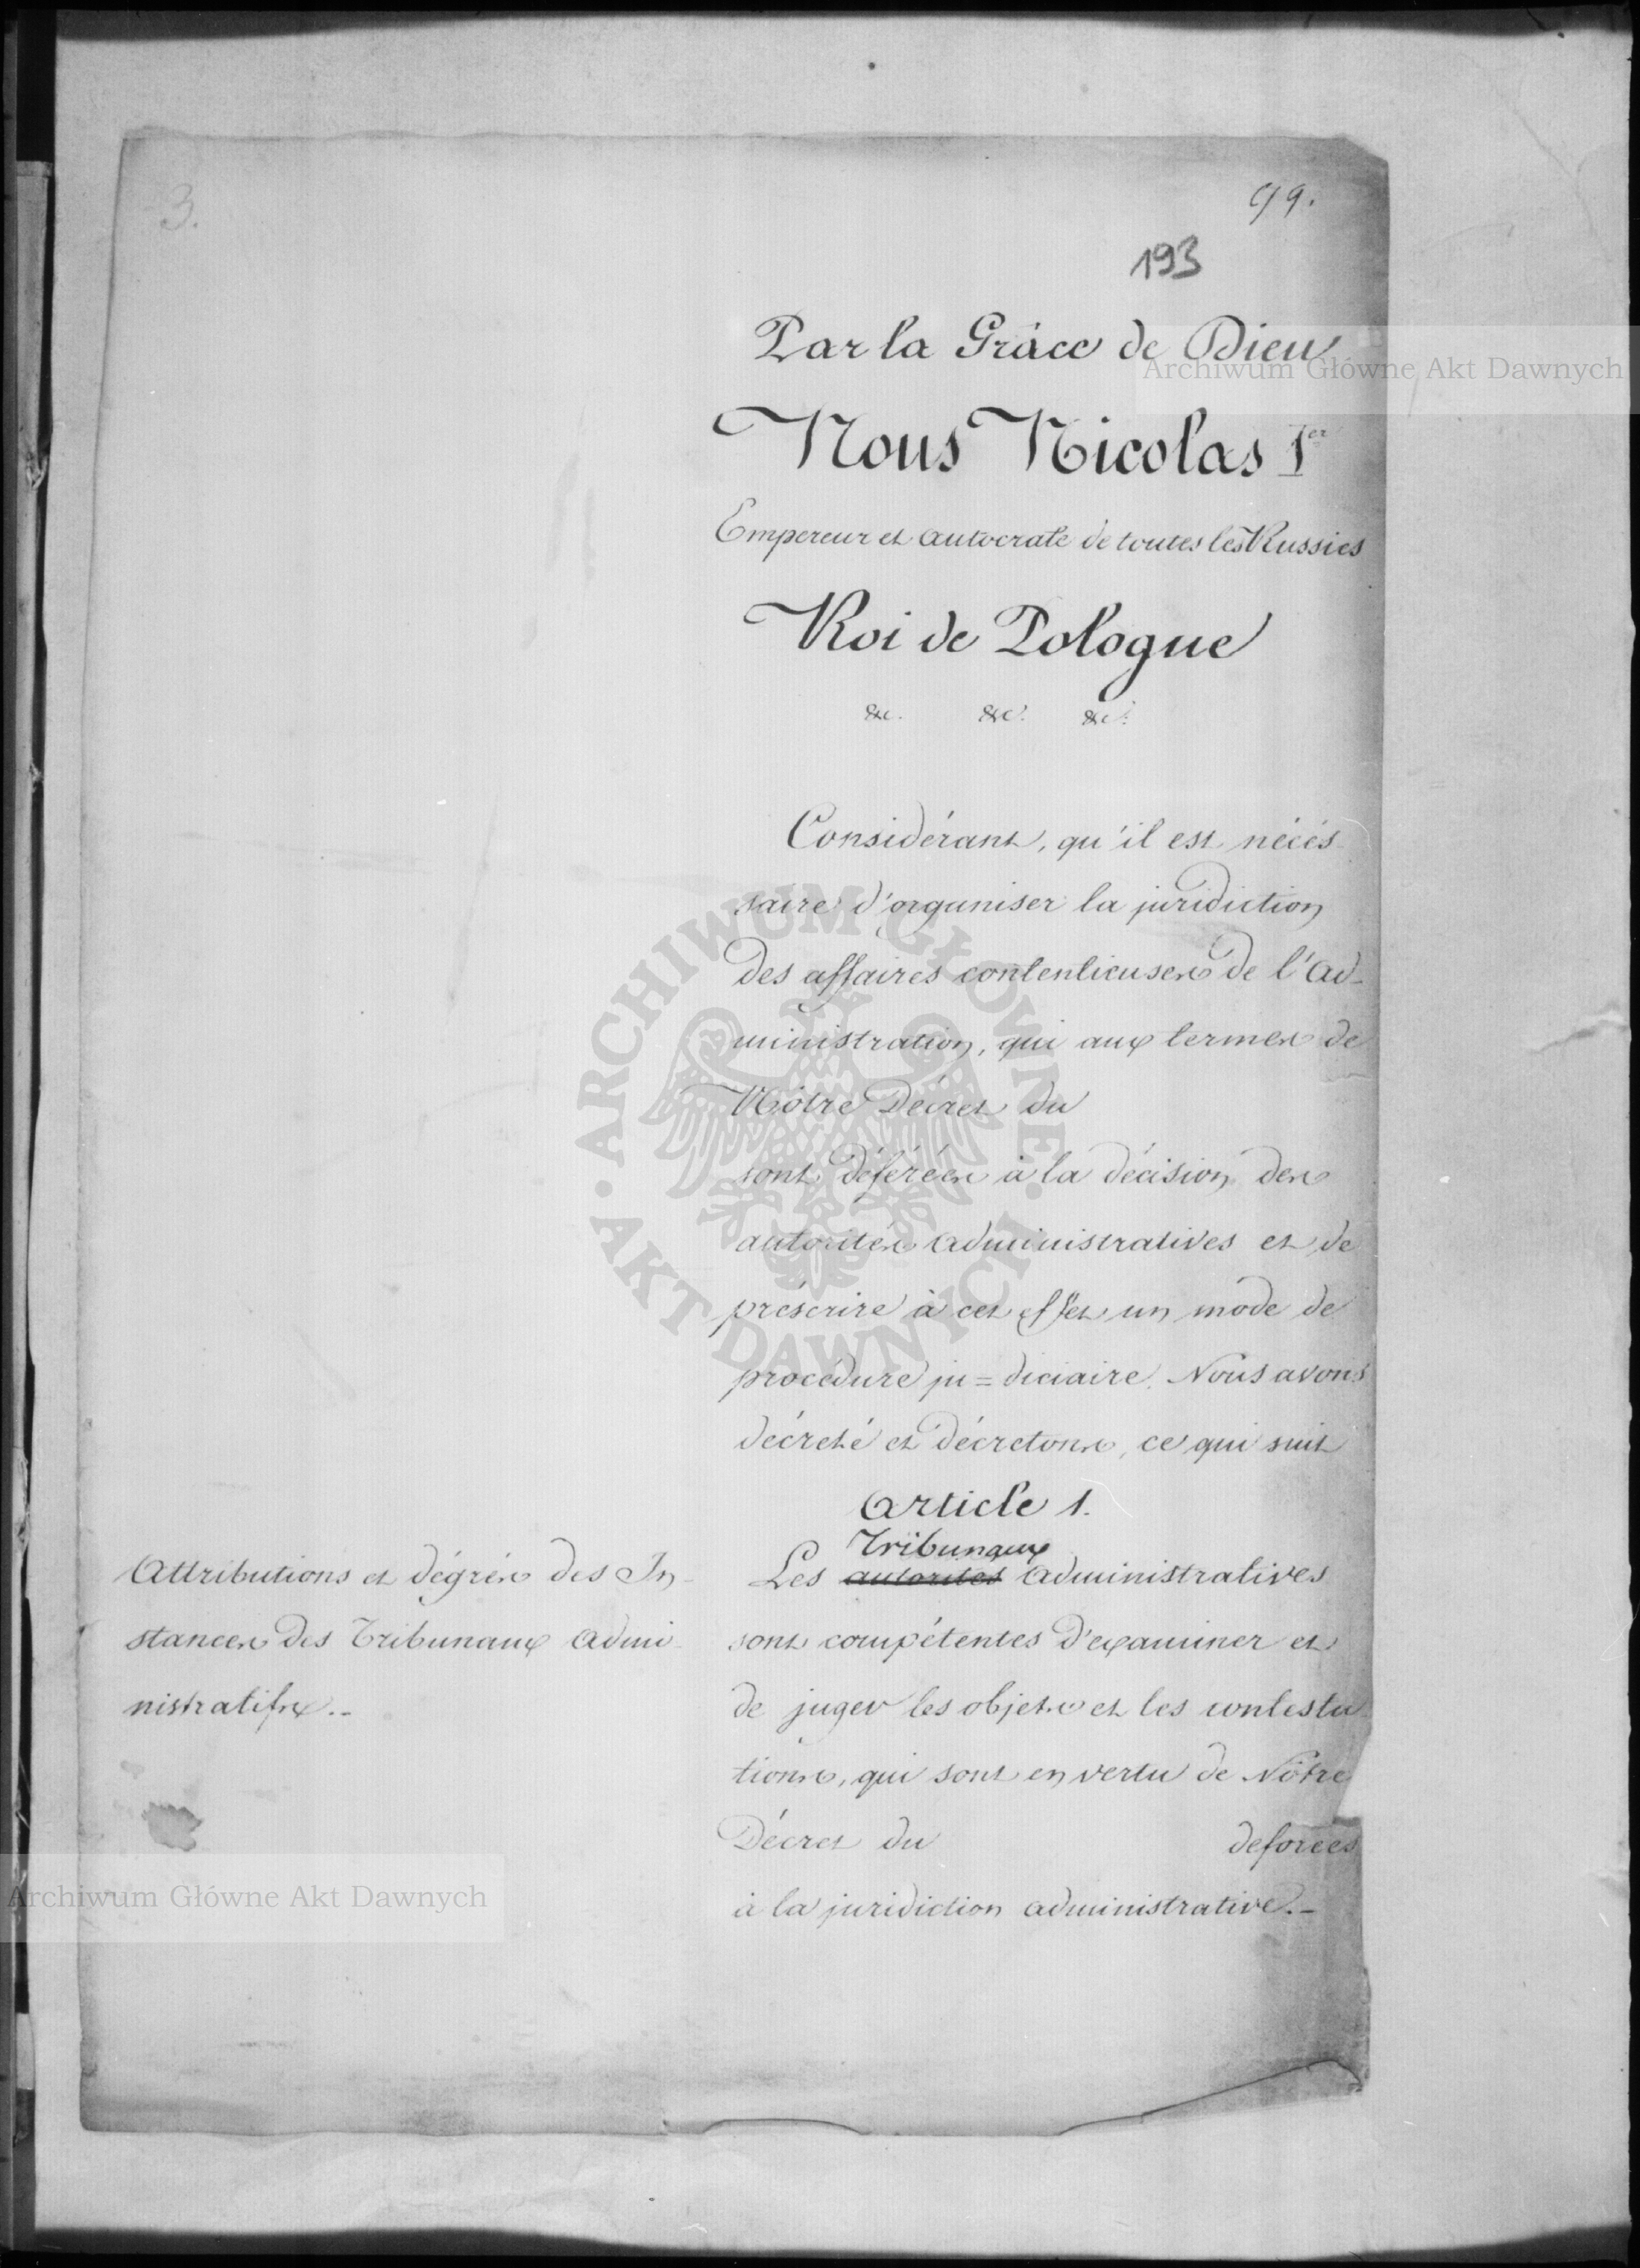 3.
99.
193
Par la Grâce de Dieu
Nous Nicolas Ier
Empereur et Autocrate de toutes les Russies
Roi de Pologne
&c. &c. &c.
Considérant, qu'il est nécés-
saire d'organiser la juridiction
des affaires contentieuses de l'Ad-
ministration, qui aux termes de
Nôtre Décret du
sont déférées à la décision des
autorités administratives et de
préscrire à cet effet un mode de
procédure ju=diciaire. Nous avons
décreté et décretons, ce qui suit
Article 1.
Tribunaux
Les autorités Administratives
sont compétentes d'examiner et
de juger les objets et les contesta
tions, qui sont en vertu de Nôtre
Décret du deferées
à la juridiction administrative.-
Attributions et dégrés des In-
stances des Tribunaux Admi-
nistratifs.-
Archiwum Główne Akt Dawnych
ARCHIWUM GŁÓWNE AKT DAWNYCH
Archiwum Główne Akt Dawnych